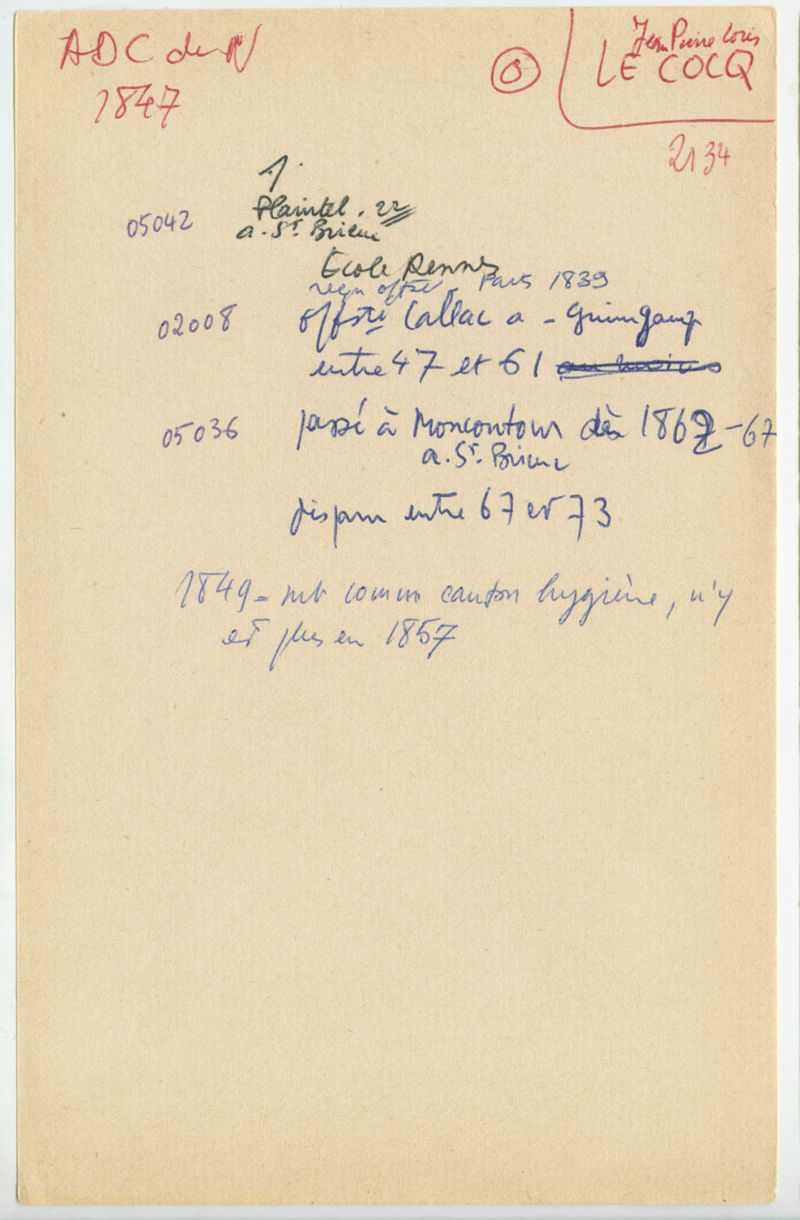 ADC du N
1847
O
Jean Pierre Louis
LE COCQ
2134
1
05042 Plaintel. 22
a. St. Brieuc
Ecole Rennes
reçu offsé Paris 1839
02008 offsté Callac a - Guingamp
entre 47 et 61 au moins
05036 passé à Moncontour dès 1862-67
a. St. Brieuc
disparu entre 67 et 73
1849 - mb comm canton hygiène, n'y
est plus en 1857